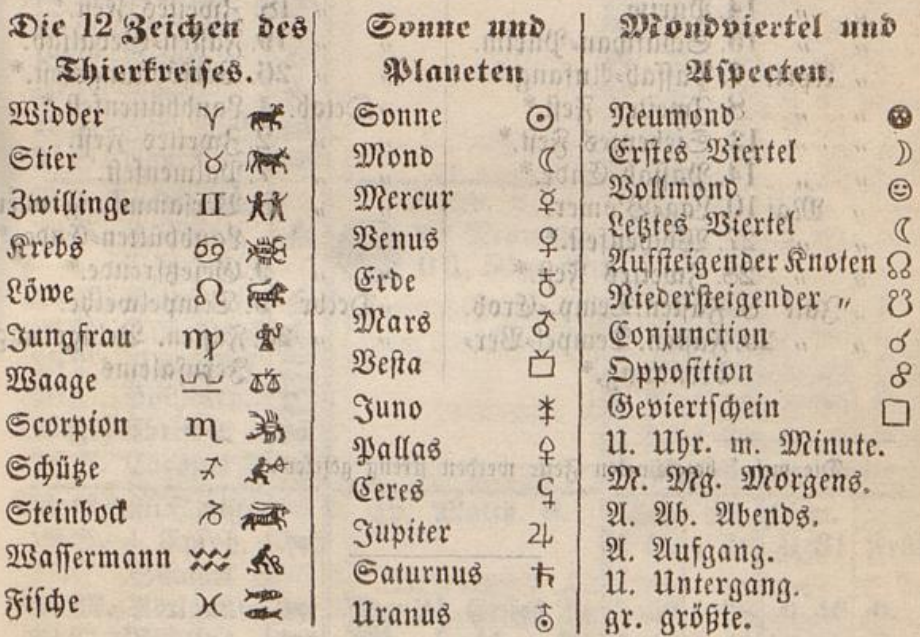 Die 12 Zeichen des
Thierkreises.
Widder ♈
Stier ♉
Zwillinge ♊
Krebs ♋
Löwe ♌
Jungfrau ♍
Waage ♎
Scorpion ♏
Schütze ♐
Steinbock ♑
Wassermann ♒
Fische ♓
Sonne und
Planeten
Sonne ☉
Mond ☾
Mercur ☿
Venus ♀
Erde ♁
Mars ♂
Vesta
Juno ⚵
Pallas ⚴
Ceres ⚳
Jupiter ♃
Saturnus ♄
Uranus ⛢
Mondviertel und
Aspecten.
Neumond
Erstes Viertel ☽
Vollmond
Letztes Viertel ☾
Aufsteigender Knoten ☊
Niedersteigender „ ☋
Conjunction ☌
Opposition ☍
Geviertschein □
U. Uhr. m. Minute.
M. Mg. Morgens.
A. Ab. Abends.
A. Aufgang.
U. Untergang.
gr. größte.